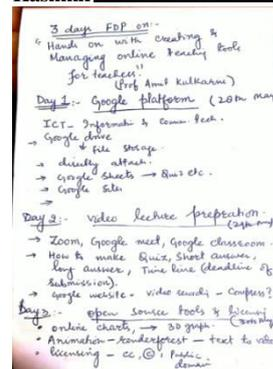 3 days FDP on:-
"Hands on with creating &
Managing online teachg tools
for teachers."
(Prof Amit Kulkarni)
Day 1:- Google platform (28th may
ICT- Informati & Commu. Tech.
→ Google drive
↳ File storage.
→ directly attach.
→ Google Sheets → Quiz etc.
→ Google Sites
→
Day 2:- video lecture prepration.
(29th may
→ Zoom, Google meet, Google classroom.
→ How to make Quiz, Short answer,
long answer, Time line (deadline of
Submission).
→ google website. video recordi - Compress?
Day 3:- open source tools & licensi
(30th may
• online charts, → 3D graph.
• Animation - Renderforest - text to video
• licensing - cc, ©, Public
domain